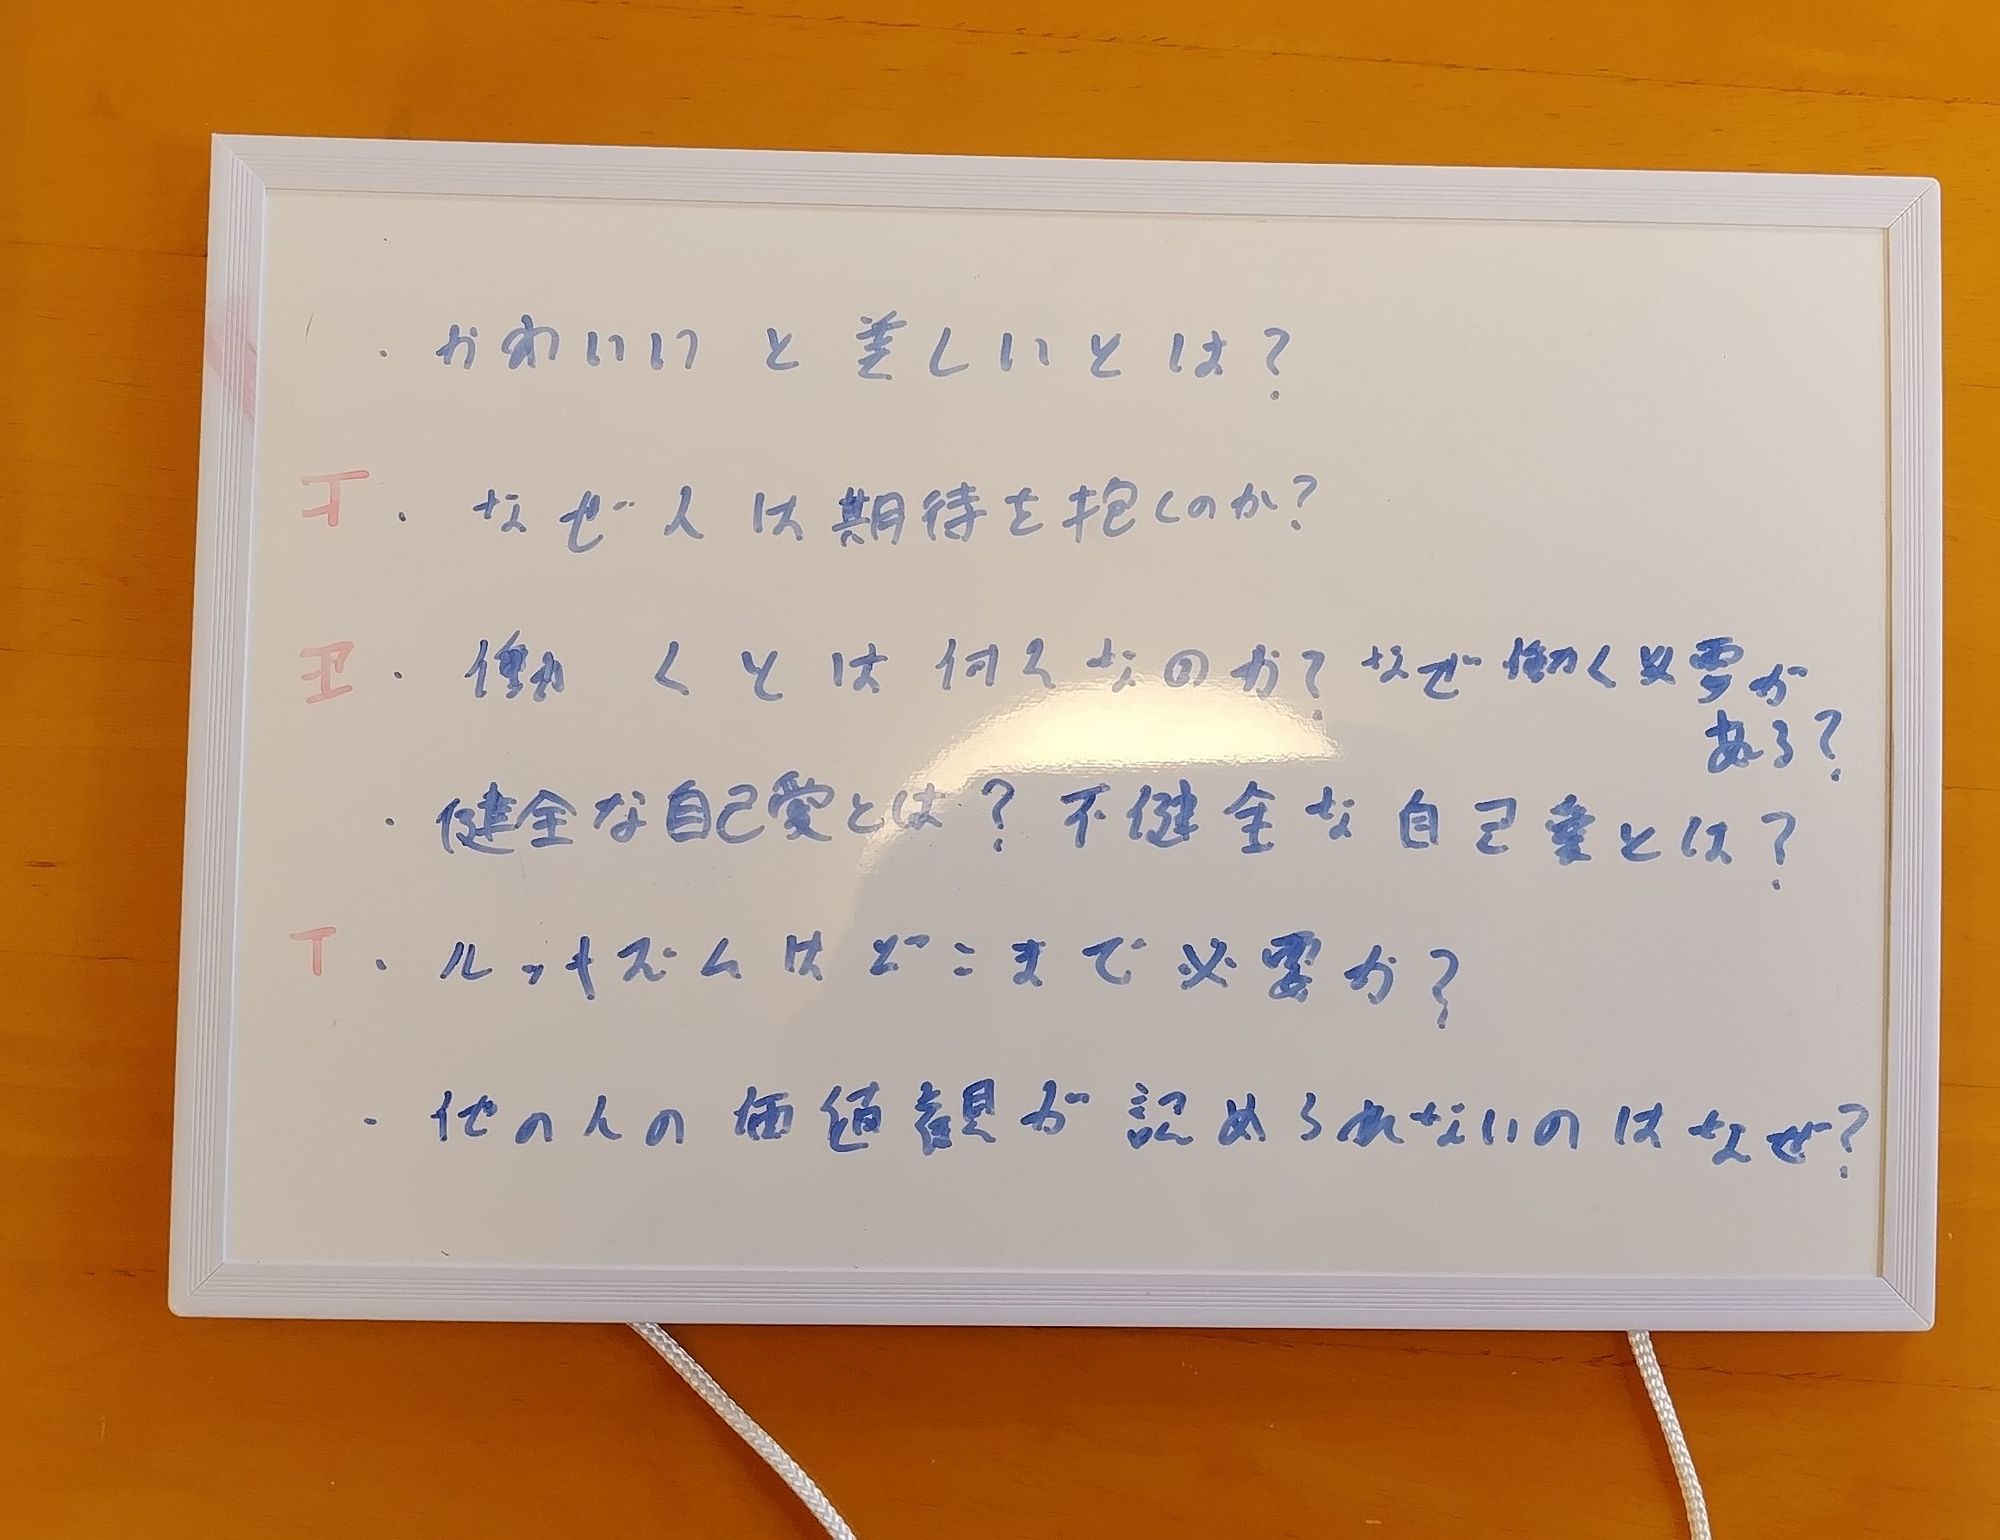 ・かわいいと美しいとは?
下・なぜ人は期待を抱くのか?
正・働くとは何なのか?なぜ働く必要が
ある?
・健全な自己愛とは?不健全な自己愛とは?
T・ルッキズムはどこまで必要か?
・他の人の価値観が認められないのはなぜ?